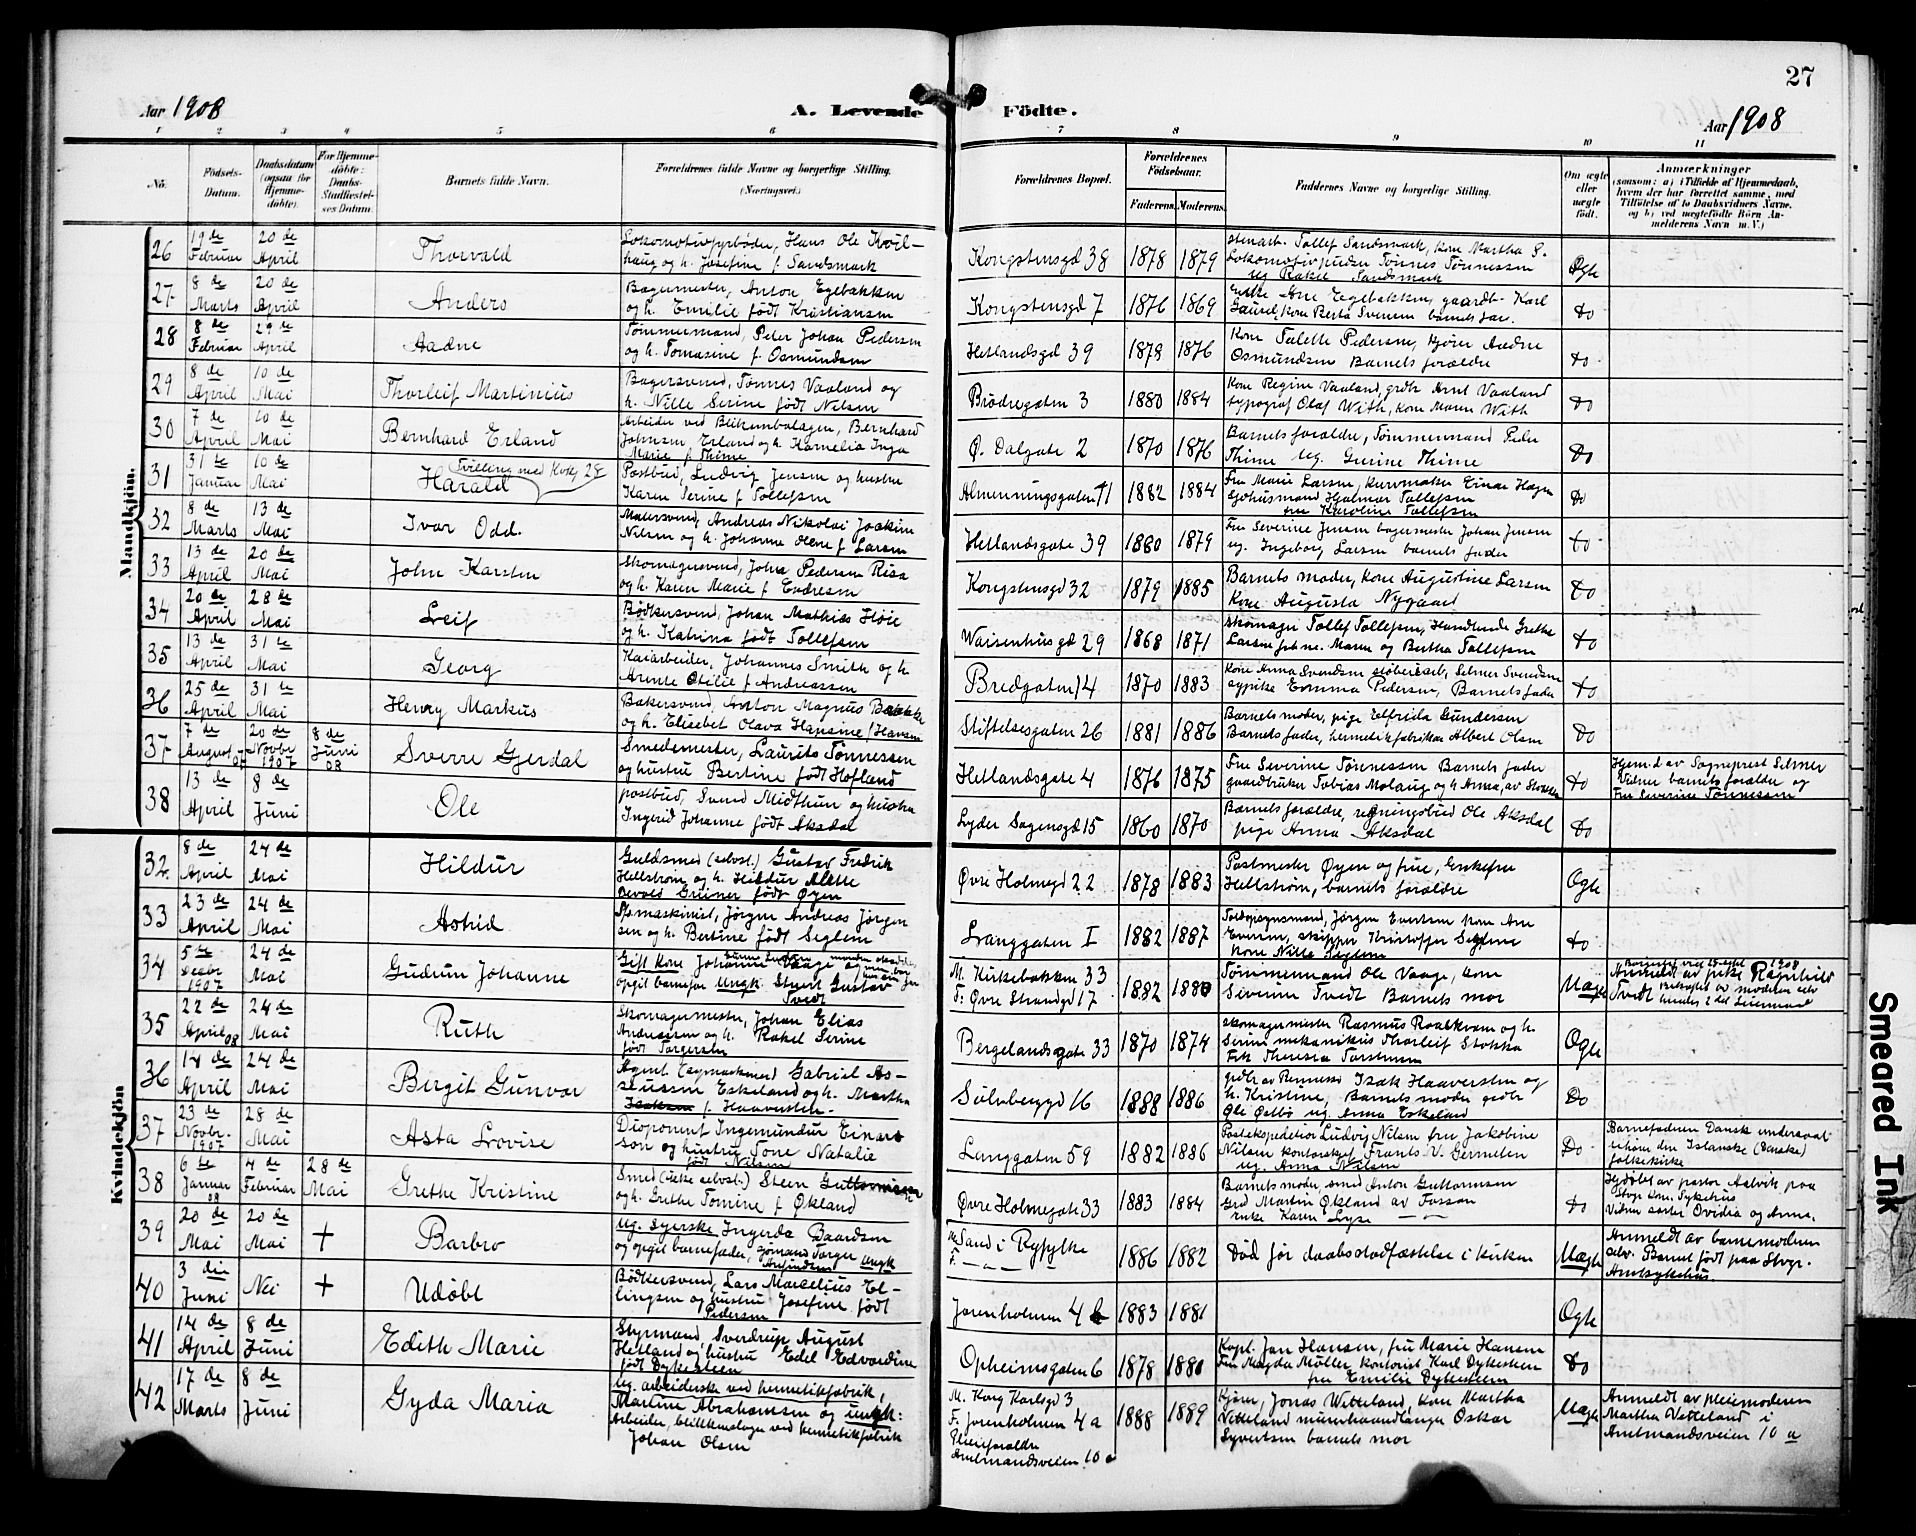 27
Aar 1908
A. Levende Födte.
Aar 1908
1 2 3 4 5 6 7 8 9 10 11
No.
Födsels-Datum.
Daabsdatum (ogsaa for Hjemmedöbte).
For Hjemmedöbte: Daabs-Stadfæstelses Datum.
Barnets fulde Navn.
Forældrenes fulde Navne og borgerlige Stilling. (Næringsvei.)
Forældrenes Bopæl.
Forældrenes Födselsaar.
Faderens. Moderens.
Faddernes Navne og borgerlige Stilling.
Om ægte eller uægte födt.
Anmærkninger
(saasom: a) i Tilfælde af Hjemmedaab, hvem der har forrettet samme, med Tilföielse af to Daabsvidners Navne, og b) ved uægtefödte Börn Anmelderens Navn m. V.)
Mandkjön.
26 19de Februar 20de April Thorvald Lokomotivfyrbøder, Hans Ole Kvilhaug og h. Josefine f. Sandsmark Kongstensgd 38 1878 1879 stenarb. Tollef Sandsmark, kone Martha S. Lokomotivpudser Tønnes Tønnessen ug Rakel Sandsmark Ægte
27 8de Marts 20de April Anders Bagermester, Anton Egebakken og h. Emilie født Kristiansen Kongstensgd 7 1876 1869 Enke Ane Egebakken, gaardb. Karl Gausel, kone Berta Svensen barnets far. do
28 8de Februar 29de April Aadne Tømmermand, Peter Johan Pedersen og h. Tomasine f. Osmundsen Hetlandsgd 39 1878 1876 Kone Talette Pedersen, kjører Aadne Osmundsen Barnets forældre do
29 8de April 10de Mai Thorleif Martinius Bagersvend, Tønnes Vaaland og h. Nille Serine født Nilsen Brødregaten 3 1880 1884 Kone Regine Vaaland, grdbr Arnt Vaaland typograf Olaf With, kone Maren With do
30 7de April 10de Mai Bernhard Erland Arbeider ved Blikemballagen, Bernhard Johnsen Erland og h. Kornelia Inga Marie f. Thime Ø. Dalgate 2 1870 1876 Barnets forældre, Tømmermand Peder Thime ug. Gurine Thime Do
31 31te Januar 10de Mai Tvilling med Kvk 28 Harald Postbud, Ludvig Jensen og hustru Karen Serine f. Tollefsen Almenningsgaten 11 1882 1884 Fru Marie Larsen, kurvmaker Einar Hagen Sjøhusmand Hjalmar Tollefsen fru Karoline Tollefsen Do
32 8de Marts 13de Mai Ivar Odd. Malersvend, Andreas Nikolai Joakim Nilsen og h. Johanne Olene f. Larsen Hetlandsgate 39 1880 1879 Fru Severine Jensen bagermester Johan Jensen ug. Ingeborg Larsen barnets fader do
33 13de April 20de Mai John Karsten Skomagersvend, John Pedersen Risa og h. Karen Marie f. Endresen Kongstensgd 32 1879 1885 Barnets moder, kone Augustine Larsen Kone Augusta Nygaard do
34 20de April 28de Mai Leif Bødkersvend, Johan Mathias Fløie og h. Katrina født Tollefsen Waisenhusgd 29 1868 1871 skomager Tollef Tollefsen, Handlende Grethe Larsen Maren og Bertha Tollefsen do
35 13de April 31te Mai Georg Kaiarbeider, Johannes Smith og h. Arente Otilie f. Andreassen Bredgaten 14 1870 1883 Kone Anna Svendsen støberiarb, Selmer Svendsen sypike Emma Pedersen, Barnets fader do
36 25de April 31te Mai Henry Markus Bakersvend, Anton Magnus Bakke og h. Elisabet Olava Hansine f. Hansen Stiftelsesgaten 26 1881 1886 Barnets moder, pige Elfrida Gundersen Barnets fader, hermetikfabrikar Albert Olsen Do
37 7de August 07 20de Novbr 1907 8de Juni 08 Sverre Gjerdal Smedemester, Laurits Tønnessen og hustru Bertine født Hofland Hetlandsgate 4 1876 1875 Fru Severine Tønnessen Barnets fader gaardbruker Tobias Molaug og h. Anna, av Stokke do Hjemd. av Sogneprest Selmer Vidner barnets forældre og Fru Severine Tønnessen
38 13de April 8de Juni Ole postbud, Svend Midthun og hustru Ingerid Johanne født Aksdal Lyder Sagensgd 15 1860 1870 Barnets forældre, regningsbud Ole Aksdal pige Anna Aksdal Do
Kvindekjön
32 8de April 24de Mai Hildur Guldsmed (selvst.) Gustav Fredrik Hellstrøm og h. Hildur Alette Devold Greiner født Øyen Øvre Holmegd 22 1878 1883 Postmester Øyen og frue, Enkefru Hellstrøm, barnets forældre Ægte
33 23de April 24de Mai Astrid S/s maskinist, Jørgen Andreas Jørgensen og h. Bertine født Seglem Langgaten I 1882 1887 Toldopsynsmand, Jørgen Evertsen kone Ane Evertsen, skipper Kristoffer Seglem kone Nilla Seglem do
34 5te Decbr 1907 24de Mai Gudrun Johanne Gift Kone Johanne Vaage og opgit barnefar Ungk. Sivert Gustav Tvedt M. Kirkebakken 33 F: Øvre Strandgd 17 1882 1880 Tømmermand Ole Vaage, kone Severine Tvedt Barnets mor Uægte Anmeldt av pike Ragnhild Tvedt
35 22de April 08 24de Mai Ruth Skomagermester, Johan Elias Andreassen og h. Rakel Serine født Torgersen Bergelandsgate 33 1870 1874 skomagermester Rasmus Roalkvam og h. Serine mekanikus Thorleif Stokka Frk Theresia Torstensen Ægte
36 14de April 24de Mai Birgit Gunvor Agent Gabriel Asseussen Eskeland og h. Martha Isaksen f. Haaverstein Sølvberggd 16 1888 1886 grdbr av Rennesø Isak Haaverstein og h. Kristine, Barnets moder grdbr Ole Østbø ug. Anna Eskeland Do
37 23de Novbr. 1907 28de Mai Asta Lovise Disponent Ingemundur Einarsson og hustru Tone Natalie født Nilsen Langgaten 59 1882 1886 Postekspeditør Ludvig Nilsen fru Jakobine Nilsen kontorchef Frants V. Germeten ug. Anna Nilsen Do Barnefaderen Dansk undersaat tilhører den Islanske (Danske) folkekirke
38 6te Januar 08 4de Februar 28de Mai Grethe Kristine Smed (ikke selvst.) Steen Guttormsen og h. Grethe Tomine f. Økland Øvre Holmegate 33 1883 1884 Barnets moder, smed Anton Guttormsen Grd Martin Økland av Fossan Enke Karen Lyse do Hjdøbt av pastor Aalvik paa Stvgr Kom. Sykehus Vidner søster Ovidia og Anna.
39 20de Mai 20de Mai + Barbro Ug. syerske Ingerda Baardsen og opgit barnefader, sjømand Torger Arfindsen Ungk M Sand i Ryfylke F. — " — 1886 1882 Død før daabsstadfæstelse i kirken Uægte Anmeldt av barnemoderen selv. Barnet født paa Stvgr. Amtsykehus
40 3die Juni Nei + Udøbt Bødkersvend, Lars Marselius Ellingsen og hustru Josefine født Pedersen Jorenholmen 4 b 1883 1881 Ægte
41 14de April 8de Juni Edith Marie Styrmand, Sverdrup August Hetland og hustru Edel Edvardine født Dykesteen Opheimsgaten 6 1878 1880 Kapt. Jan Hansen, fru Marie Hansen Fru Magda Møller, kontorist Karl Dykesteen fru Emilie Dykesteen do
42 17de Marts 8de Juni Gyda Maria Ug. arbeiderske ved hermetikfabrik, Martine Abrahamsen og ungk: Arbeider, blikkemballage ved hermetikfabrik Johan Olsen M. Kong Karlsgd 3 F. Jorenholmen 4 a Pleieforældre Amtmandsveien 10 a 1888 1889 Kjører, Jonas Vetteland, kone Martha Vetteland murerhaandlanger Oskar Syvertsen barnets mor Uægte Anmeldt av pleiemoderen Martha Vetteland i Amtmandsveien 10 a
Smeared Ink